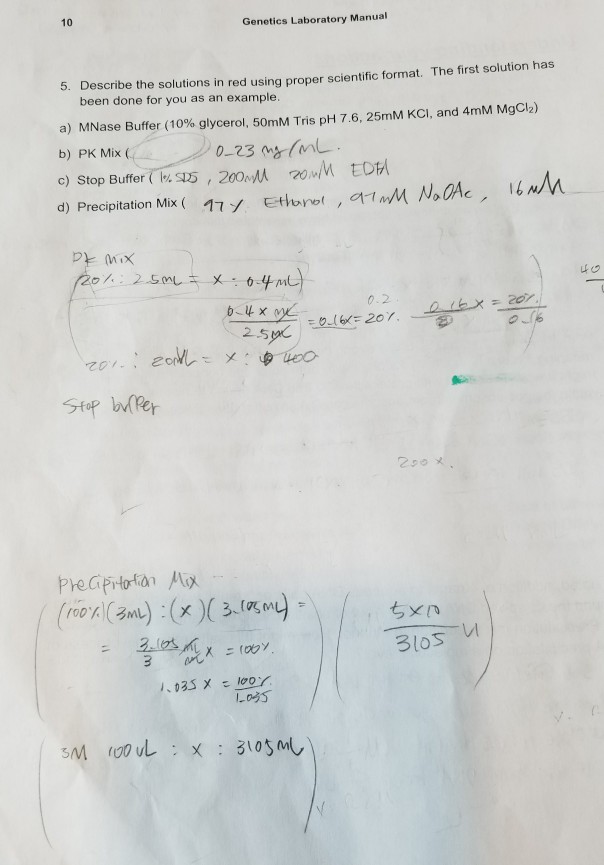 10 Genetics Laboratory Manual
5. Describe the solutions in red using proper scientific format. The first solution has
been done for you as an example.
a) MNase Buffer (10% glycerol, 50mM Tris pH 7.6, 25mM KCl, and 4mM MgCl₂)
b) PK Mix ( 0.23 mg/mL.
c) Stop Buffer ( 1% SDS, 200mM 20mM EDTA
d) Precipitation Mix ( 97% Ethanol, 97mM NaOAc, 16 mM
PK Mix
(20% : 2.5mL = x : 0.4 mL)
40
0.4 x mL
2.5mL
= 0.16x = 20%.
0.2
0.16x = 20%
0.16
20% : = x : 400
Stop buffer
200 x.
Precipitation Mix
(100%)(3mL) : (x)(3.105mL) =
= 3.105 mL
3 mL
x = 100%.
1.035 x = 100%
1.035
5x10
3105
3M 100uL : x : 3105mL